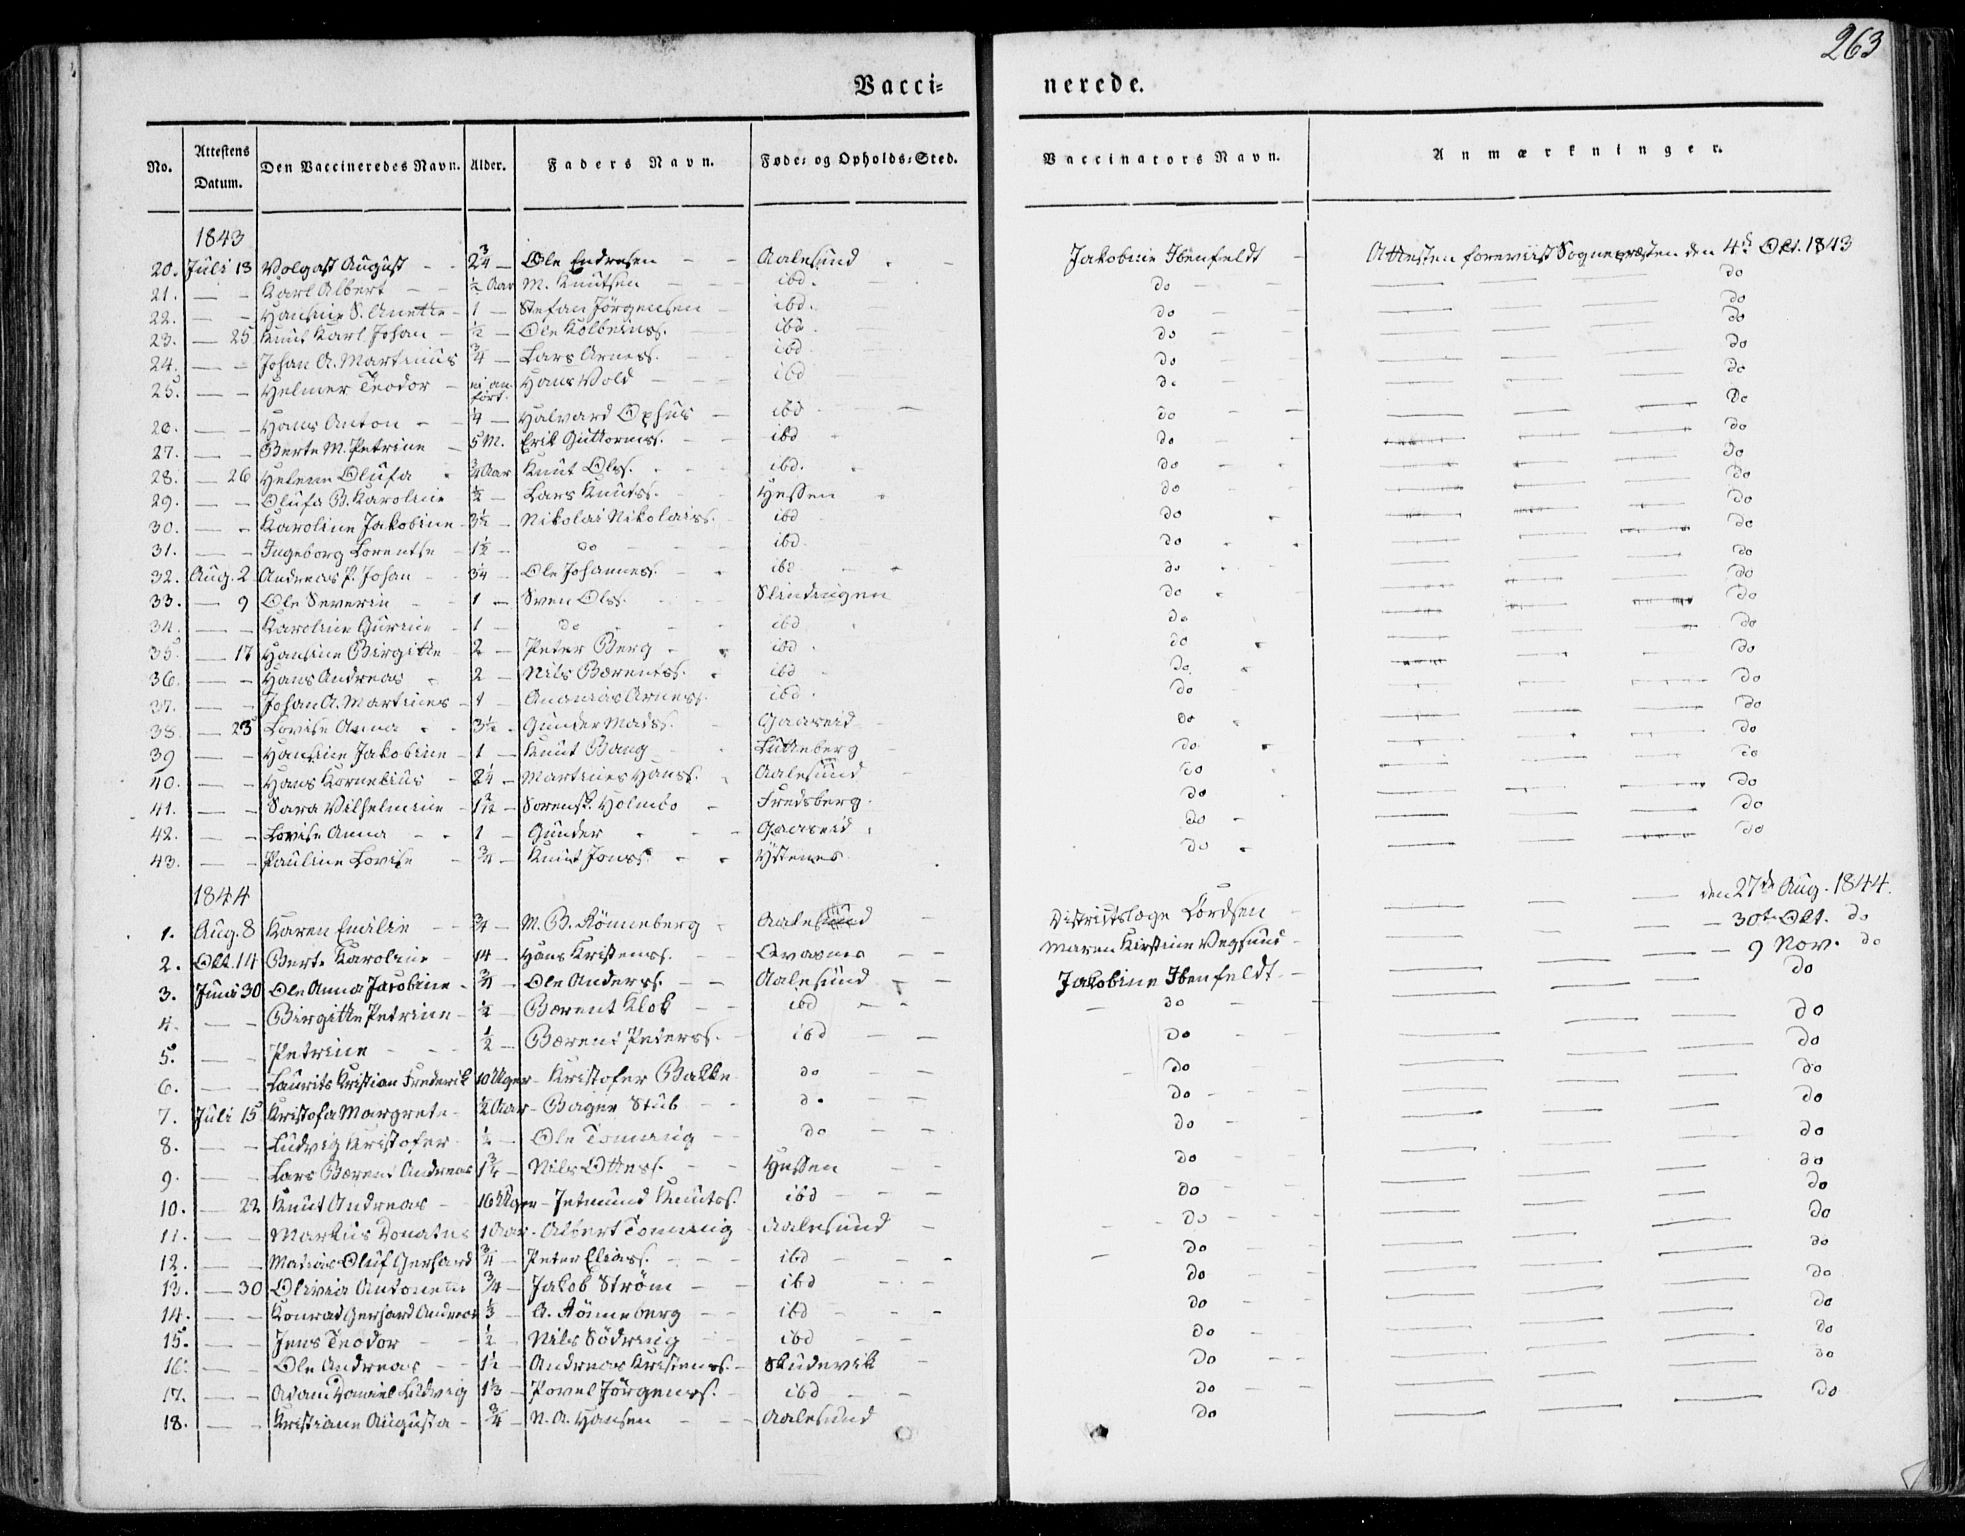 263
Vacci=nerede.
No. Attestens Datum. Den Vaccineredes Navn. Alder. Faders Navn. Føde= og Opholds=Sted. Vaccinators Navn. Anmærkninger.
1843
20. Juli 13 Volgast August - - 2 3/4 - Ole Endresen - - Aalesund - - Jakobine Ibenfeldt - Attesten foreviist Sognepræsten den 4de Okt. 1843
21. - - Karl Albert - - 1/2 Aar M. Knutsen - - ibd. - do - - do
22. - - Hansine S. Anette - 1 - Stefan Jörgensen - ibd. - do - - do
23. - 25 Knut Karl Johan - 1/2 - Ole Kolbeinss. - ibd. do - - do
24. - - Johan A. Martinus 3/4 - Lars Arness. - ibd. do - - do
25. - - Helmer Teodor - ei anfört. Hans Vold - - ibd - do - - do
26. - - Hans Anton - - 1/4 - Halvard Ophus - ibd - - do - - do
27. - - Berte M. Petrine - 5 M. Erik Guttormss. - ibd - do - - do
28. - 26 Helene Olufa - 3/4 Aar Knut Olss. - - ibd. - do - - do
29. - - Olufa B. Karoline 1/2 - Lars Knutss. - Hessen - do - - do
30. - - Karoline Jakobine - 3 1/2 - Nikolai Nikolaiss. - ibd - do - do
31. - - Ingeborg Lorentse - 1 1/2 - do - - - ibd. do - - do
32. Aug. 2 Andreas P. Johan - - 3 1/4 - Ole Johanness. - - ibd - - do - - do
33. - 9 Ole Severin - - 1 - Sven Olss. - - Slindingen do - do
34. - - Karoline Gurine - 1 - do - - ibd - do - do
35. - 17 Hansine Birgitte - 2 - Peter Berg - - ibd - do - do
36. - - Hans Andreas - 2 - Nils Bærentss. - ibd - do - do
37. - - Johan A. Martines - 1 - Ananias Arness. ibd. do - do
38. - 23 Lovise Anna - - 3 1/2 - Gunder Madss. - Gaaseid - do - do
39 - - Hansine Jakobine - 1 - Knut Bang - - - do - do
40. - - Hans Kornelius - 2 1/4 - Martines Hanss. - Aalesund - do - do
41. - - Sara Vilhelmine - 1 - Holmbo - Fredsberg. do - do
42. - - Lovise Anna - - 1 - Gunder - - - Gaaseid - do - do
43. - - Pauline Lovise - 3/4 - Knut Jonss. - - Ystenes do - do
1844
1. Aug. 8 Karen Emilie - - 3/4 - M. B. Rönneberg - Aalesund - Distriktslæge - - - - den 27de Aug. 1844.
2. Okt. 14 Berte Karoline - 14 - Hans Kristenss. - - - - Maren Kirstine Vegsund - - 30te Okt. do
3. Juni 30 Ole Anna Jacobine - 3/4 - Ole Anderss. - - Aalesund - - Jakobine Ibenfeldt. - - 9 Nov. do
4. - - Birgitte Petrine - 1/2 - Bærent Klok - - ibd - - - do - - do
5. - - Petrine - - - 1/2 - Bærent Pederss. - ibd - - do - do
6. - - Laurits Kristian Frederik 10 Uger - Kristofer Bakke do - - - do - do
7. Juli 15 Kristofa Margrete - 1/2 Aar - Bager Stub - - do - - do - - do
8. - - Ludvig Kristofer 1/2 - Ole Tonning - - do - - do - do
9. - - Lars Bærent Andreas 1 3/4 - Nils Ottess. - - Hessen - - do - - do
10. - 22 Knut Andreas - 16 Uger - Jetmund Knutss. ibd - - - do - - do
11. - - Markus Donatus 1 Aar - Albert Tonning - Aalesund - - - do - - do
12. - - Matias Oluf Gerhard 3/4 - Peter Eliass. - - ibd - - - do - - do
13. - 30 Olivia Antonette 3/4 - Jakob Ström - - ibd - - do - - do
14. - - Konrad Gerhard Andreas 1/3 - A. Rönneberg - - ibd - - - do - - do
15. - - Jens Teodor - - 1/2 - Nils Södring - - ibd - - do - do
16. - - Ole Andreas - - 1 1/2 - Andreas Kristenss. - Skudevik - do - - do
17. - - Adam Daniel Ludvig 1 1/3 - Povel Jörgenss. - ibd - - do - - do
18. - - Kristiane Augusta - 3/4 - N. A. Hansen - - - Aalesund do - do